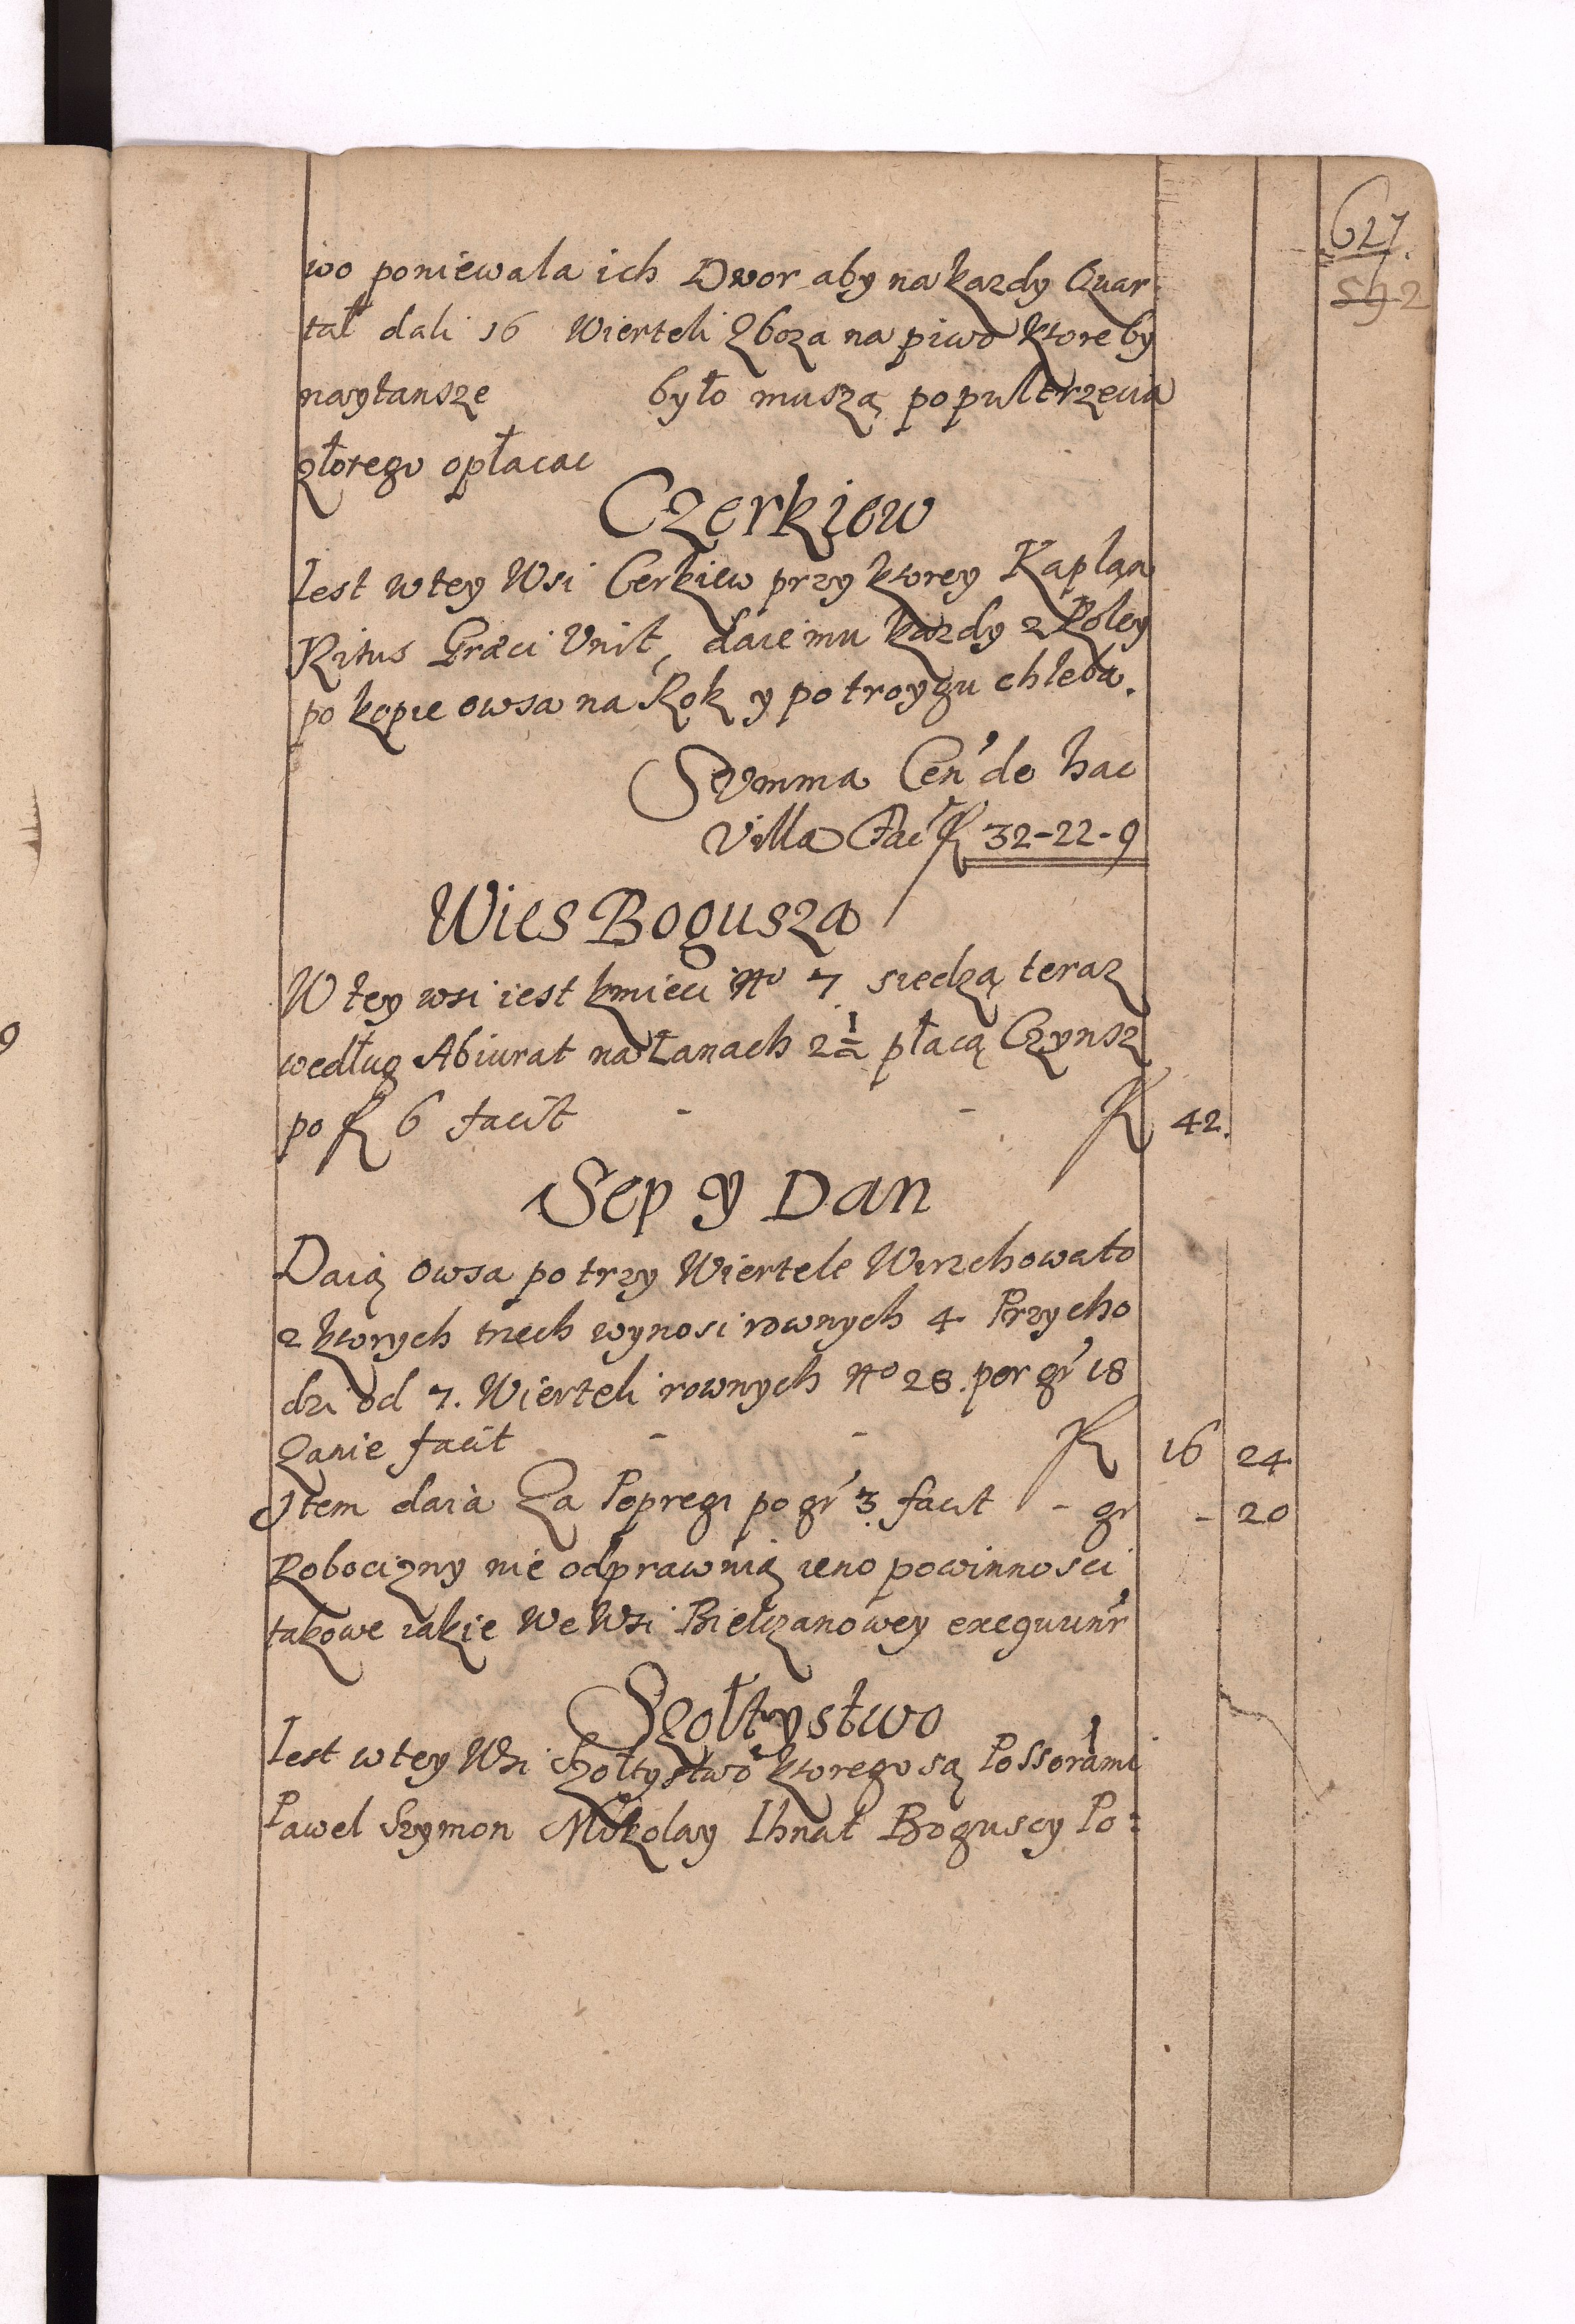 627.
592
wo poniewala ich Dwor aby na kazdy Quar
tał dali 16 Wierteli Zboza na piwo ktore by
naytansze było muszą po pułtrzecia
złotego opłacac
Czerkiew
Iest w tey Wsi Cerkiew przy ktorey Kapłan
Ritus Græci Unit, daie mu kazdy z Roley
po kopie owsa na Rok y po troygu chleba.
Summa Cen' de hac
Villa Fac' fl 32-22-9
Wies Bogusza
W tey wsi iest kmieci No 7 siedzą teraz
według Abiurat na Łanach 2½ płacą Czynsz
po fl 6 facit - - fl 42.
Sep y Dan
Daią owsa po trzy Wiertele Wirzchowato
z ktorych trzech wynosi rownych 4. Przycho
dzi od 7. Wierteli rownych No 28. per gr' 18
Zanie facit - - fl 16 24
Item daia Za Popregi po gr' 3. facit - gr - 20
Robocizny nie odprawuią ieno powinnosci
takowe iakie We Wsi Bielczanowey exequunr'
Szołtystwo
Iest w tey Wsi Szołtystwo ktorego są Possorami
Pawel Szymon Mikolay Ihnat Boguscy Po: